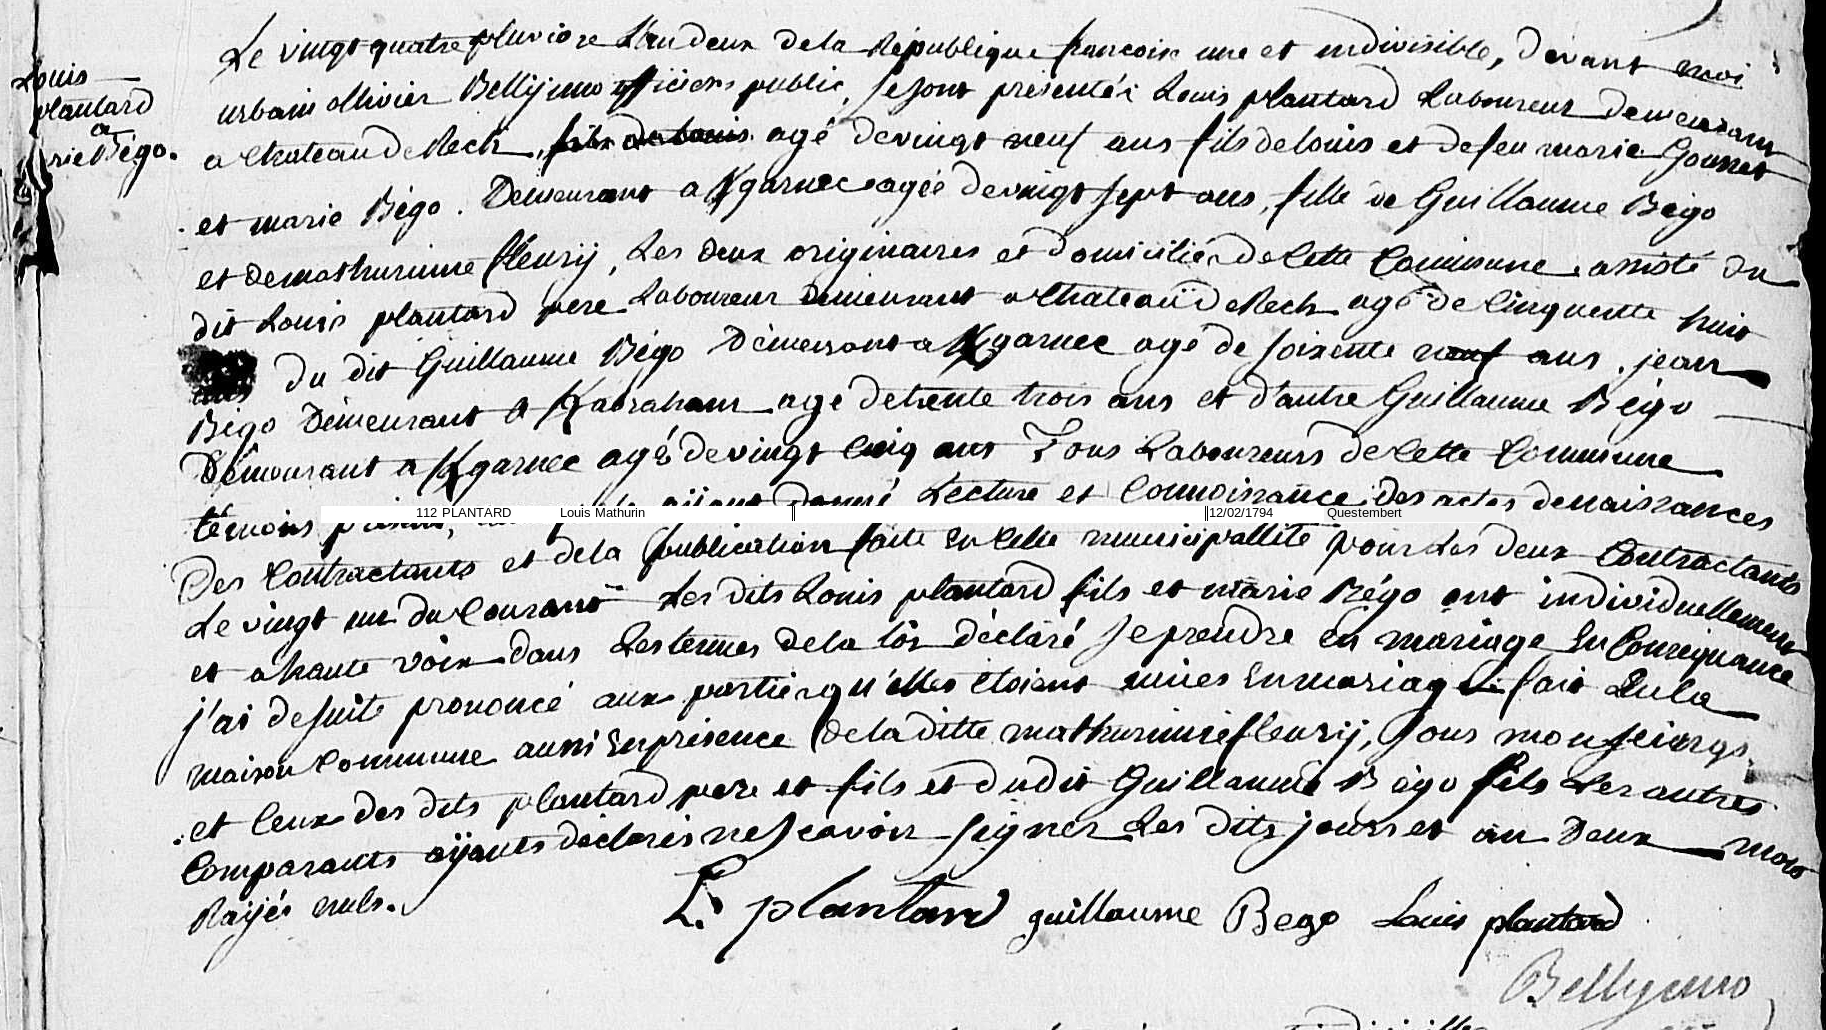 Louis
plantard
a
rie Bégo.
Le vingt quatre pluviose L'an deux de la République francoise une et indivisible, devant moi
urbain ollivier Bellyjuno officiers public, se sont presentés Louis plantard Laboureur demeurant
a Chateau de Rech, fils de louis agé de vingt neuf ans fils de louis et de feu marie Gousset
et marie Bégo. Demeurant a Kgarnec agée de vingt sept ans, fille de Guillaume Bégo
et de mathurinne fleury, Les deux originaires et domiciliés de Cette Commune assisté du
dit Louis plantard pere Laboureur demeurant a Chateau de Rech agé de Cinquente huit
ans du dit Guillaume Bégo Démeurant a Kgarnec agé de soixente neuf ans, jean
Bégo Démeurant a Kabraham agé de trente trois ans et d'autre Guillaume Bégo
Démeurant a Kgarnec agé de vingt Cinq ans Tous Laboureurs de Cette Commune
témoins ayant donné Lecture et Connoissance des actes de naissances
112 PLANTARD Louis Mathurin 12/02/1794 Questembert
Des Contractants et de la publication faite En Cette municipallité pour Les deux Contractants
Le vingt un du Courant Les dits Louis plantard fils et marie Bégo ont individuellement
et a haute voix dans Les termes de la loi déclaré se prendre en mariage En Conséquance
j'ai de suite prononcé aux parties qu'elles étoient unies En mariage fait En la
maison Commune aussi En présence de la ditte mathurinne fleury, sous mon seing
et Ceux des dits plantard pere et fils et du dit Guillaume Bégo fils Les autres
Comparants ayants déclarés ne scavoir signer Les dits jours et an Deux mots
Rayés nuls.
L. plantard guillaume Bego Louis plantard
Bellyjuno